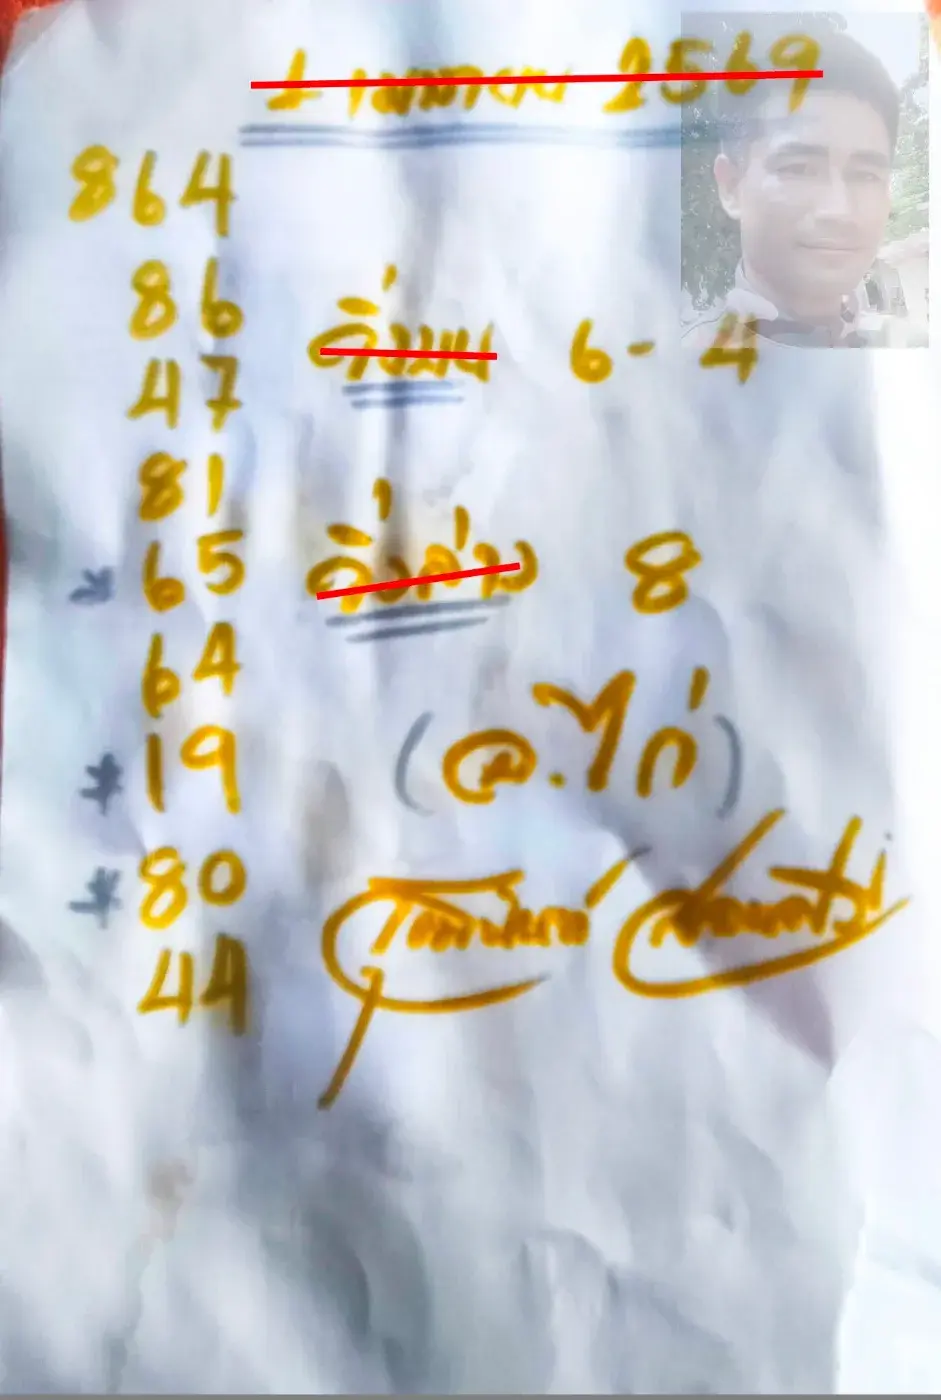 1 เมษายน 2569
864
86
47
วิ่งบน 6 - 4
81
* 65
วิ่งล่าง 8
64
* 19
(อ.ไก่)
* 80
44